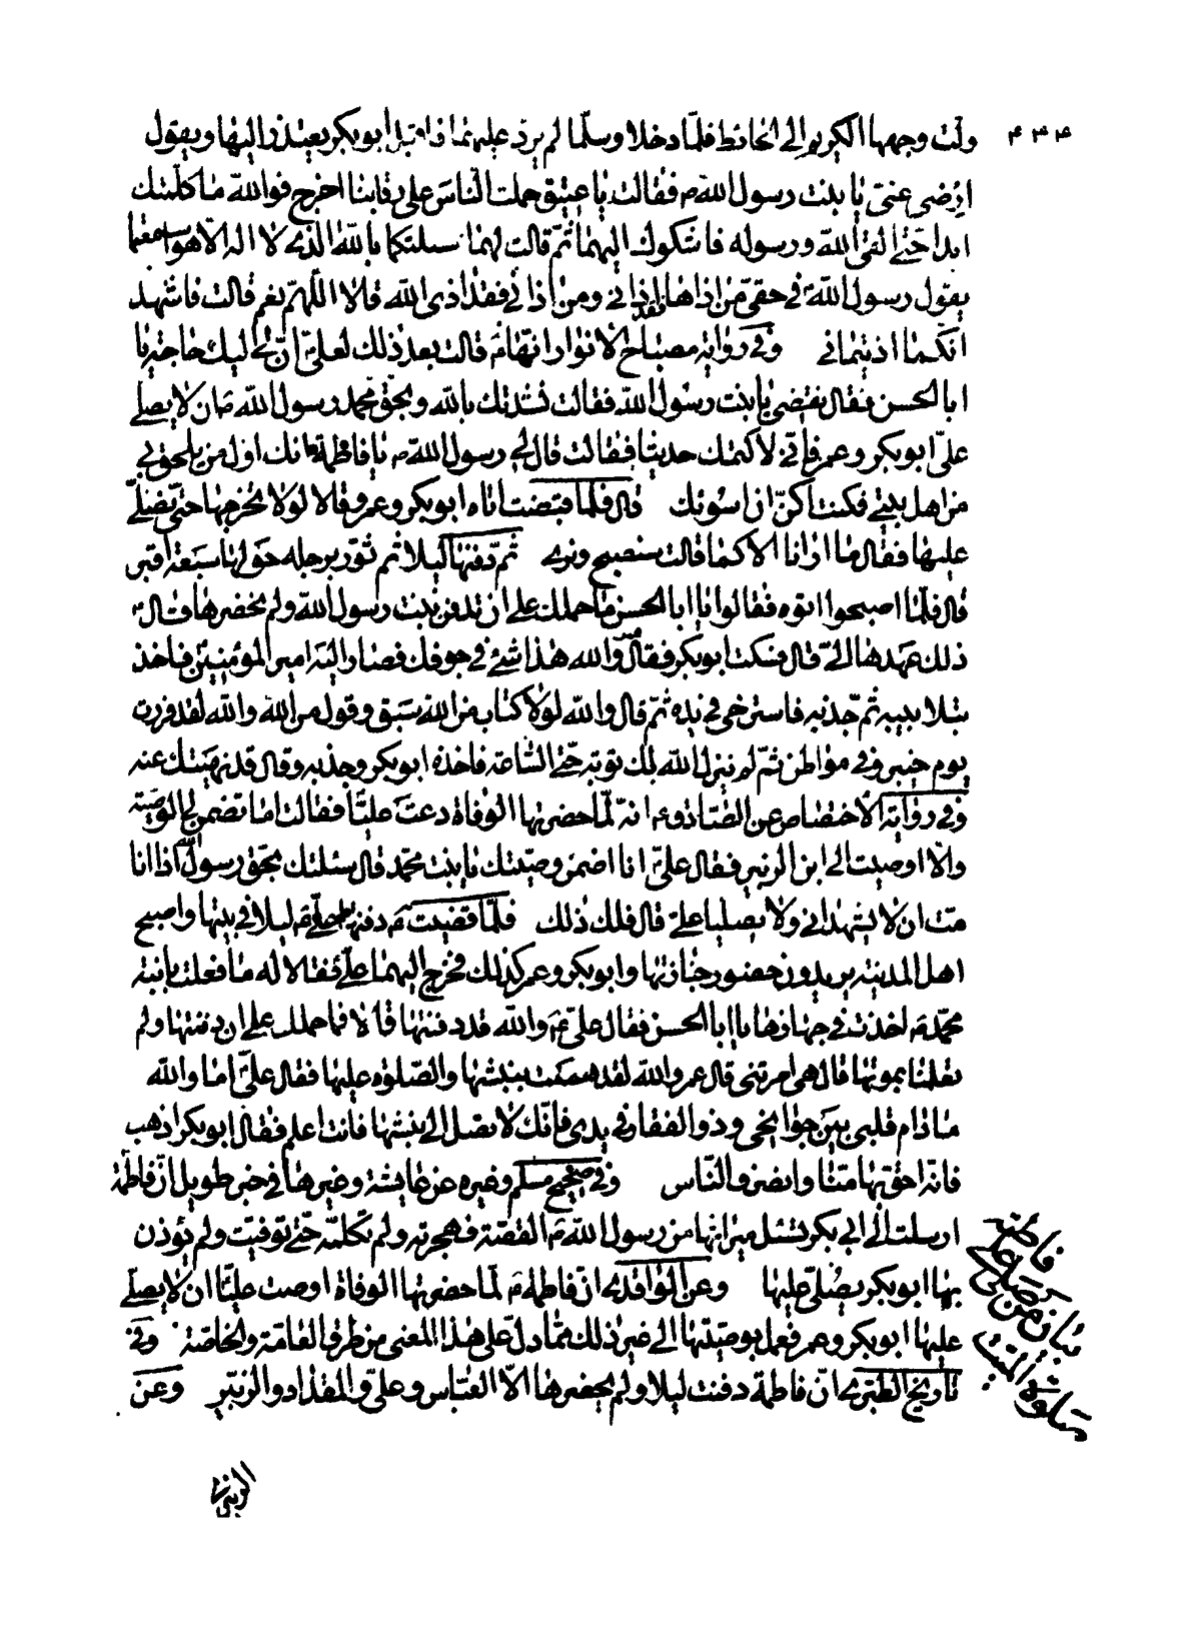 ۴۳۴
ولت وجهها الكريم الى الحائط فلما دخلا وسلما لم يرد عليهما فاقبل ابو بكر يعتذر اليها ويقول
ارضى عنى يا بنت رسول الله ص فقالت يا عتيق حملت الناس على رقابنا اخرج فوالله ما كلمتك
ابدا حتى القى الله ورسوله فاشكوك اليهما ثم قالت لهما سئلتكما بالله الذى لا اله الا هو اسمعتما
يقول رسول الله فى حقى من اذاها فقد اذانى ومن اذانى فقد اذى الله قالا اللهم نعم قالت فاشهد
انكما اذيتمانى وفى رواية مصباح الانوار انها قالت بعد ذلك لعلى ان لى اليك حاجة يا
ابا الحسن فقال تقضى يا بنت رسول الله فقالت نشدتك بالله وبحق محمد رسول الله ص ان لا يصلى
على ابو بكر وعمر فانى لا كتمتك حديثا فقالت قال لى رسول الله ص يا فاطمة انك اول من يلحق بى
من اهل بيتى فكنت اكره ان اسوئك قال فلما قبضت اتاه ابو بكر وعمر وقالا لو لا تخرجها حتى نصلى
عليها فقال ما ارانا الا كما قالت سنصبح ونرى ثم دفنها ليلا ثم ثور برجله حولها سبعة اقبر
قال فلما اصبحوا اتوه فقالوا يا ابا الحسن ما حملك على ان تدفن بنت رسول الله ولم نحضرها قال
ذلك عهدها الى قال فسكت ابو بكر فقال عمر والله هذا شئ فى جوفك فصار اليه امير المؤمنين فاخذ
بتلابيبه ثم جذبه فاسترخى فى يده ثم قال والله لو لا كتاب من الله سبق وقول من الله والله لقد فررت
يوم خيبر وفى مواطن ثم لم ينزل الله لك توبة حتى الساعة فاخذه ابو بكر وجذبه وقال قد نهيتك عنه
وفى رواية الاختصاص عن الصادق ع انه لما حضرتها الوفاة دعت عليا فقالت اما تضمن لى الوصية
والا اوصيت الى ابن الزبير فقال على انا اضمن وصيتك يا بنت محمد قال سئلتك بحق رسول الله اذا انا
مت ان لا يشهدانى ولا يصليا على قال فلك ذلك فلما قضيت ع دفنها على ع ليلا فى بيتها واصبح
اهل المدينة يريدون حضور جنازتها وابو بكر وعمر كذلك فخرج اليهما على فقالا له ما فعلت بابنة
محمد ص اخذت فى جهازها يا ابا الحسن فقال على ع والله قد دفنتها قالا فما حملك على ان دفنتها ولم
تعلمنا بموتها قال هى امرتنى قال عمر والله لقد هممت بنبشها والصلوة عليها فقال على اما والله
ما دام قلبى بين جوانحى وذو الفقار فى يدى فانك لا تصل الى نبشها فانت اعلم فقال ابو بكر اذهب
فانه احق بها منا وانصرف الناس وفى صحيح مسلم وغيره عن عايشة وغيرها فى خبر طويل ان فاطمة
ارسلت الى ابى بكر تسئل ميراثها من رسول الله ص القصة فهجرته ولم تكلمه حتى توفيت ولم يؤذن
بها ابو بكر يصلى عليها وعن الواقدى ان فاطمة ع لما حضرتها الوفاة اوصت عليا ان لا يصلى
عليها ابو بكر وعمر فعمل بوصيتها الى غير ذلك مما دل على هذا المعنى من طرق العامة والخاصة وفى
تاريخ الطبرى ان فاطمة دفنت ليلا ولم يحضرها الا العباس وعلى والمقداد والزبير وعن
بيان من صلى على فاطمة